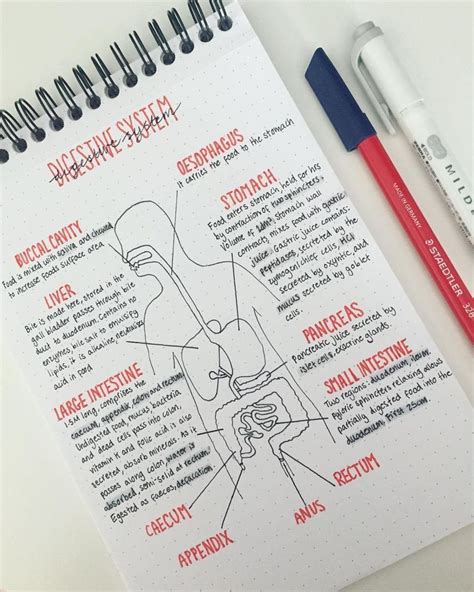 DIGESTIVE SYSTEM
digestive system
OESOPHAGUS
It carries the food to the stomach
BUCCAL CAVITY
Food is mixed with saliva and chewed
to increase foods surface area
STOMACH
Food enters stomach held for hrs
by contraction of two sphincters.
Volume of stomach wall
contracts, mixes food with gastric
juice. Gastric juice contains:
peptidases, secreted by the
zymogen/chief cells. HCl
secreted by oxyntic, and
mucus secreted by goblet
cells.
LIVER
Bile is made here, stored in the
gall bladder passes through bile
duct to duodenum. Contains no
enzymes, bile salt to emulsify
lipids, it is alkaline neutralise
acid in food
PANCREAS
Pancreatic juice secreted by
islet cells, exocrine glands.
LARGE INTESTINE
1.5M long, comprises the
caecum, appendix, colon and rectum.
Undigested food, mucus, bacteria
and dead cells pass into colon.
Vitamin K and folic acid is also
secreted, absorb minerals. As it
passes along colon, water is
absorbed, semi-solid at rectum.
Egested as faeces, defaecation.
SMALL INTESTINE
Two regions: duodenum, ileum.
Pyloric sphincters relaxing allows
partially digested food into the
duodenum, first 25cm.
RECTUM
CAECUM
ANUS
APPENDIX
MADE IN GERMANY
STAEDTLER
326
MILD